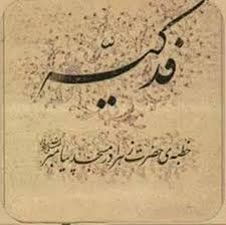 فدکیه
خطبه‌ی حضرت زهرا در مسجد پیامبر